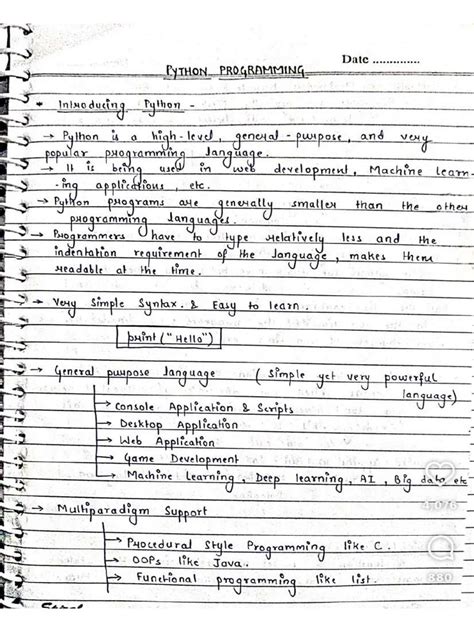 Date ..............
PYTHON PROGRAMMING
* Introducing Python -
→ Python is a high-level, general-purpose, and very
popular programming language.
→ It is being used in web development, Machine Learn-
ing applications, etc.
→ Python programs are generally smaller than the other
programming languages.
→ Programmers have to type relatively less and the
indentation requirement of the language, makes them
readable at the time.
→ Very Simple Syntax. & Easy to learn.
print("Hello")
→ General purpose language (Simple yet very powerful
language)
→ Console Application & Scripts
→ Desktop Application
→ Web Application
→ Game Development
→ Machine Learning, Deep learning, AI, Big data, etc
4,076
→ Multiparadigm Support
→ Procedural Style Programming like C.
→ OOPs like Java.
→ Functional programming like list.
880